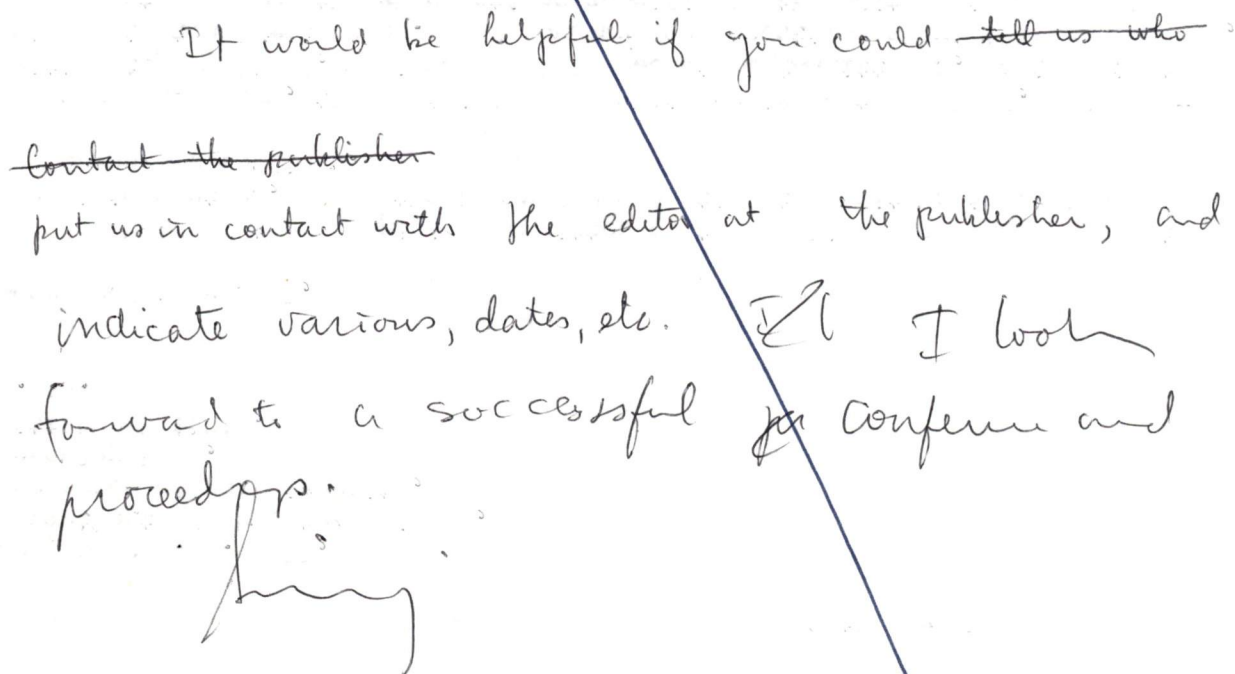 It would be helpful if you could tell us who
Contact the publisher
put us in contact with the editor at the publisher, and
indicate various, dates, etc. I look
forward to a successful conference and
proceedings.